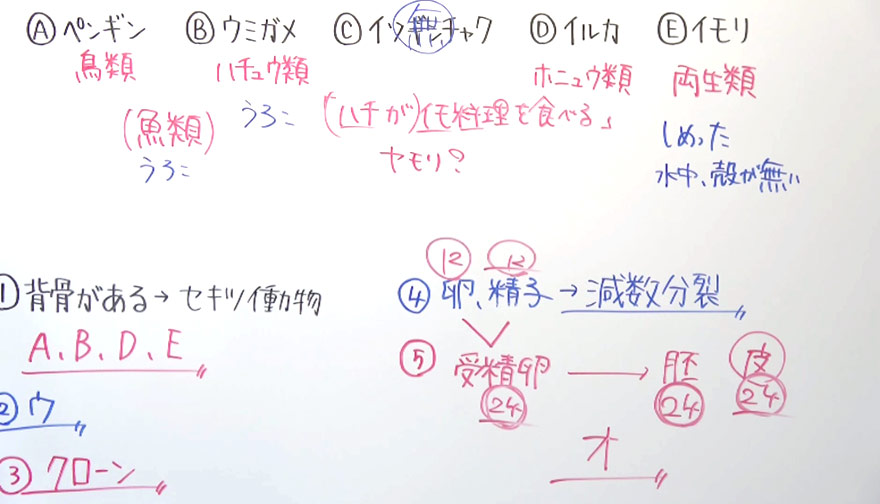 Ⓐペンギン Ⓑウミガメ Ⓒイソギンチャク Ⓓイルカ Ⓔイモリ
無
鳥類 ハチュウ類 ホニュウ類 両生類
(魚類) うろこ (「ハチが)イモ料理を食べる」 しめった
うろこ ヤモリ? 水中、殻が無い
①背骨がある→セキツイ動物
A、B、D、E
②ウ
③クローン
12 12
④卵、精子→減数分裂
⑤受精卵→胚 皮
24 24 24
オ